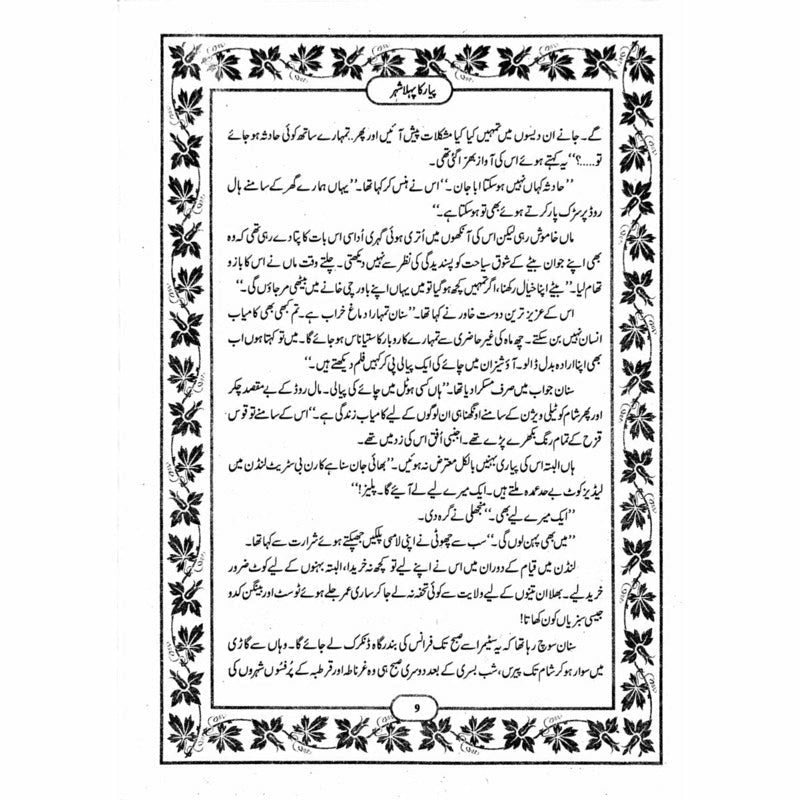 پیار کا پہلا شہر
گے۔ جانے ان دیسوں میں تمہیں کیا کیا مشکلات پیش آئیں اور پھر..تمہارے ساتھ کوئی حادثہ ہو جائے
تو.....؟‘‘ یہ کہتے ہوئے اس کی آواز بھرّا گئی تھی۔
’’حادثہ کہاں نہیں ہو سکتا ابا جان۔‘‘ اس نے ہنس کر کہا تھا۔ ’’یہاں ہمارے گھر کے سامنے ہال
روڈ پر سڑک پار کرتے ہوئے بھی تو ہو سکتا ہے۔‘‘
ماں خاموش رہی لیکن اس کی آنکھوں میں اُتری ہوئی گہری اُداسی اس بات کا پتا دے رہی تھی کہ وہ
بھی اپنے جوان بیٹے کے شوقِ سیاحت کو پسندیدگی کی نظر سے نہیں دیکھتی۔ چلتے وقت ماں نے اس کا بازو
تھام لیا۔ ’’بیٹے اپنا خیال رکھنا، اگر تمہیں کچھ ہو گیا تو میں یہاں اپنے باورچی خانے میں بیٹھی مر جاؤں گی۔‘‘
اس کے عزیز ترین دوست خاور نے کہا تھا۔ ’’سنان تمہارا دماغ خراب ہے۔ تم کبھی بھی کامیاب
انسان نہیں بن سکتے۔ چھ ماہ کی غیر حاضری سے تمہارے کاروبار کا ستیاناس ہو جائے گا۔ میں تو کہتا ہوں اب
بھی اپنا ارادہ بدل ڈالو۔ آؤ شیزان میں چائے کی ایک پیالی پی کر کہیں فلم دیکھتے ہیں۔‘‘
سنان جواب میں صرف مسکرا دیا تھا۔ ’’ہاں کسی ہوٹل میں چائے کی پیالی۔ مال روڈ کے بے مقصد چکر
اور پھر شام کو ٹیلی ویژن کے سامنے اونگھنا ہی ان لوگوں کے لیے کامیاب زندگی ہے۔‘‘ اس کے سامنے تو قوس
قزح کے تمام رنگ بکھرے پڑے تھے۔ اجنبی اُفق اس کی زد میں تھے۔
ہاں البتہ اس کی پیاری بہنیں بالکل معترض نہ ہوئیں۔ ’’بھائی جان سنا ہے کارن بی سٹریٹ لنڈن میں
لیڈیز کوٹ بے حد عمدہ ملتے ہیں۔ ایک میرے لیے لے آئیے گا۔ پلیز!‘‘
’’ایک میرے لیے بھی۔‘‘ منجھلی نے گرہ دی۔
’’میں بھی پہن لوں گی۔‘‘ سب سے چھوٹی نے اپنی لامبی پلکیں جھپکتے ہوئے شرارت سے کہا تھا۔
لنڈن میں قیام کے دوران میں اس نے اپنے لیے تو کچھ نہ خریدا، البتہ بہنوں کے لیے کوٹ ضرور
خرید لیے۔ بھلا ان تینوں کے لیے ولایت سے کوئی تحفہ نہ لے جا کر ساری عمر جلے ہوئے ٹوسٹ اور بینگن کدو
جیسی سبزیاں کون کھاتا!
سنان سوچ رہا تھا کہ یہ سٹیمر اسے صبح تک فرانس کی بندرگاہ ڈنکرک لے جائے گا۔ وہاں سے گاڑی
میں سوار ہو کر شام تک پیرس، شب بسری کے بعد دوسری صبح ہی وہ غرناطہ اور قرطبہ کے پُرفسُوں شہروں کی
9